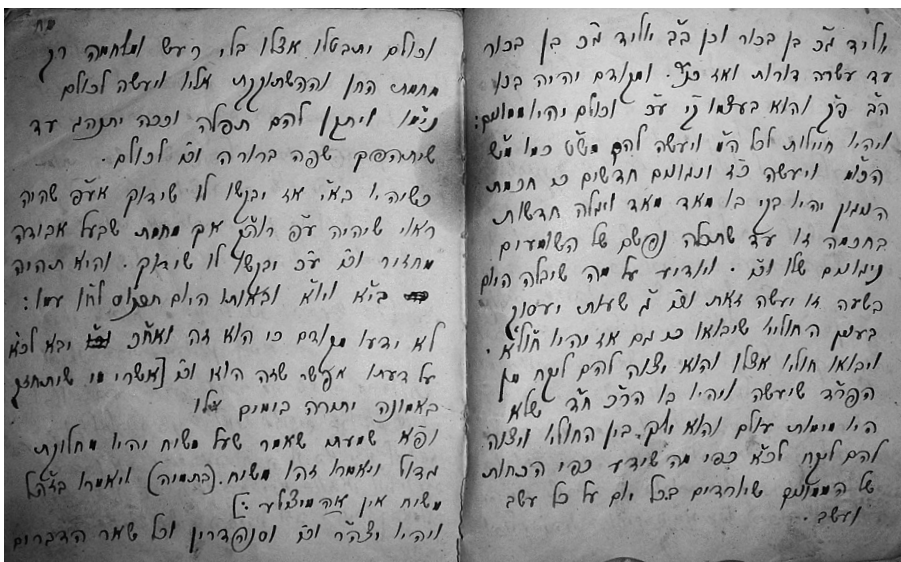 אליד מ"כ בן בכור וכן ב"ב אליד מ"כ בן בכור
עד עשרה דורות ואז ומקודם יהיה
הב' פ"ק והוא בעצמו ק"י ע"כ וכולם יהיו ממונים:
ויהיו חיילות לכל ויעשה להם כמו
ויעשה כ"ד ונגונים חדשים כי חכמת
הנגון יהיו בקי בו מאד מאד ויגלה חדשות
בחכמה זו עד שתכלה נפשם של השומעים
ניגונים שלו וכו'. ויודיע על מה שיגלה היום
בשעה זו יעשה זאת וכו' ג' שעות יעסוק
בענין החולי' שיבואו כי גם אז יהיו חולא'.
ויבואו חולי' אצלו והוא יצוה להם ליקח מן
הפר"ד שיעשה ויהיו בו הר"כ ח"ד שלא
היו מימות עולם והוא ילך בין החולי' ויצוה
להם ליקח לכ"א כפי מה שידע כפי הכחות
של הממונים שיורדים בכל יום על כל עשב
ועשב.
וכולם יתבטלו אצלו בלי רעש ומלחמה רק
מחמת החן וההשתוקקות אליו ויעשה לכולם
ויתקן להם תפלה וככה יתנהג עד
שיתהפך שפה ברורה וכו' לכולם.
כשיהיו אז יבקשו לו שידוך אע"פ שהיה
ראוי שיהיה ע"פ רוה"ק אך מחמת שבעל אבידה
מחזיר וכו' ע"כ יבקשו לו שידוך. והיא תהיה
ויו"א היום
לא ידעו מקודם כי הוא זה ואח"כ יבא לכ"א
על דעתו אפשר שזה הוא וכו' [אשרי מי שיתחזק
באמונה יתירה בימים אלו
ופ"א שמעתי שאמר שעל משיח יהיו מחלוקת
גדול ויאמרו זהו משיח. (בתמיה) ויאמרו בזה"ל
משיח אין א"ה מיצלע:]
ויהיו יצה"ר וכו' וסנהדרין וכל שאר הדברים